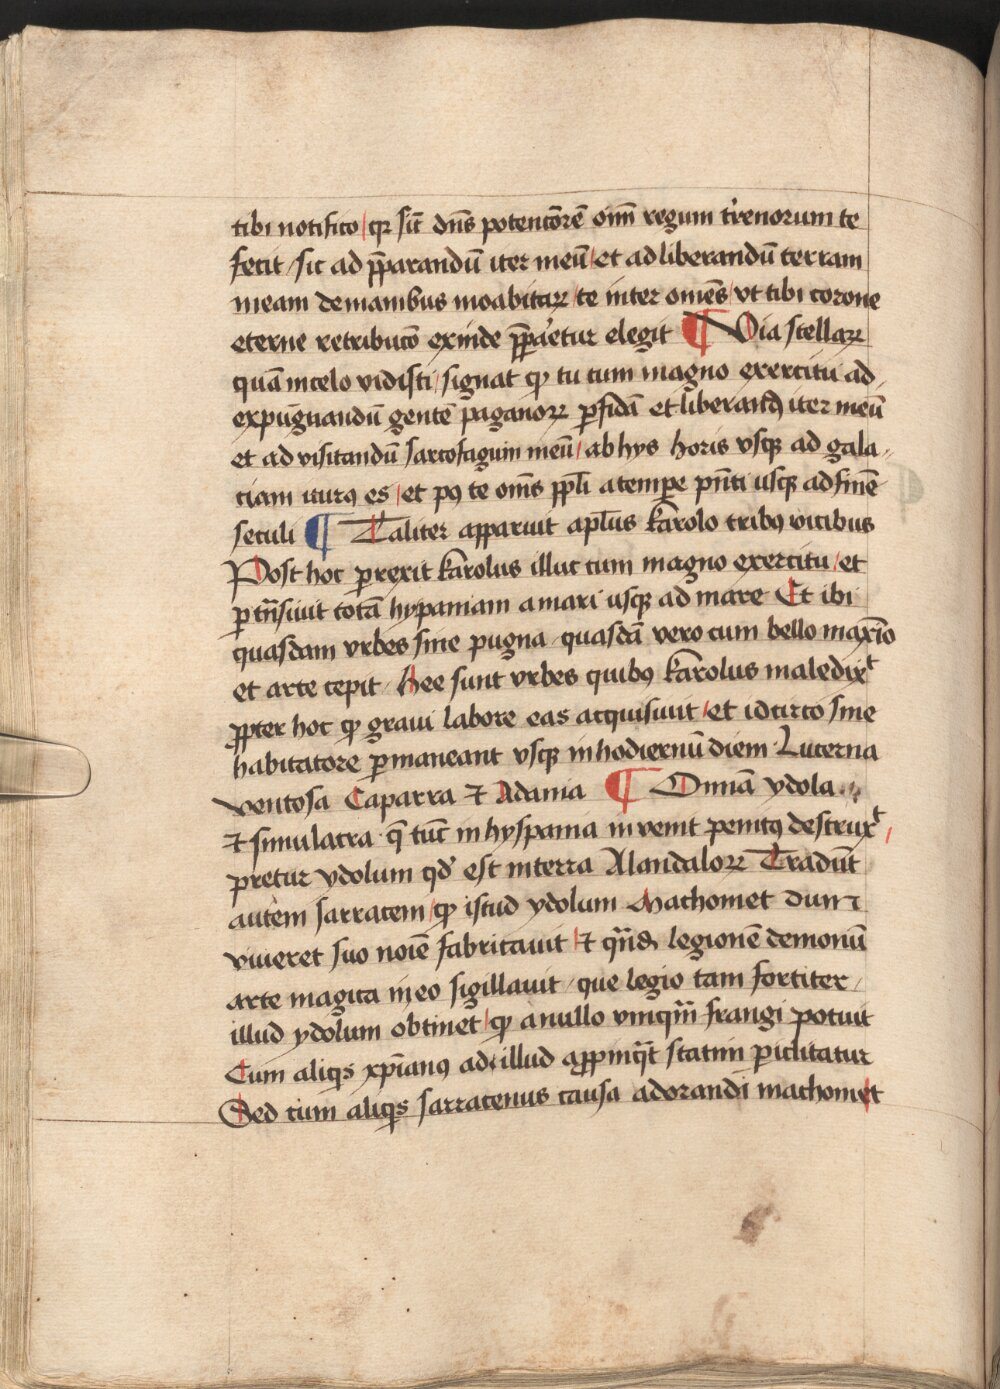 tibi notifico / qꝛ sic̄ dn̄s potencōrē om̄ regum tr̄renorum te
fecit / sic ad p̄parandū iter meū / et ad liberandū terram
meam de manibus moabitaꝝ / te inter omēs / vt tibi corone
eterne retribucō exinde p̄paretur elegit ¶ Via stellaꝝ
quā in celo vidisti / signat ꝙ tu cum magno exercitu ad
expūgnandū gentē paganoꝝ ꝑfidā et liberand̄ iter meū
et ad visitandū sarcofagum meū / ab hys horis vsqꝫ ad gala-
ciam iturꝰ es / et pꝰ te om̄s ppl̄i a tempore pn̄ti usqꝫ ad finē
seculi ¶ Taliter apparuit apl̄us karolo tribꝰ vicibus
Post hoc ꝑrexit karolus illuc cum magno exercitu / et
ꝑtn̄siuit totā hypaniam a mari usqꝫ ad mare Et ibi
quasdam vrbes sine pugna quasdā vero cum bello maxīo
et arte cepit / Hee sunt vrbes quibꝰ karolus maledixᵗ
ꝓpter hoc ꝙ graui labore eas acquisiuit / et idcirco sine
habitatore ꝑmaneant vsqꝫ in hodiernū diem Lucerna
ventosa Caparra ⁊ Adania ¶ Omīa ydola
⁊ simulacra q̄ tūc in hyspania in venit penitꝰ destruxᵗ /
pretur ydolum qd̄ est in terra Alandaloꝝ Tradūt
autem sarraceni / ꝙ istud ydolum Machomet dum
viueret suo noīe fabricauit ⁊ qn̄dā legionē demonū
arte magica in eo sigillauit / que legio tam fortiter /
illud ydolum obtinet / ꝙ a nullo vnqm̄ frangi potuit
Cum aliqs xp̄ianꝰ ad illud appinq̄t statim ꝑiclitatur
Sed cum aliqs sarracenus causa adorandi machomet